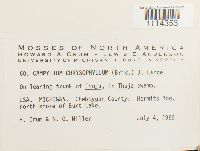 1114353
MOSSES OF NORTH AMERICA
HOWARD A. CRUM • LEWIS E. ANDERSON
UNIVERSITY OF MICHIGAN • DUKE UNIVERSITY
60. CAMPYLIUM CHRYSOPHYLLUM (Brid.) J. Lange
On leaning trunk of Thuja, in Thuja swamp.
USA. MICHIGAN. Cheboygan County: Hermits Bog,
north shore of Burt Lake.
H. Crum & N. G. Miller July 4, 1968